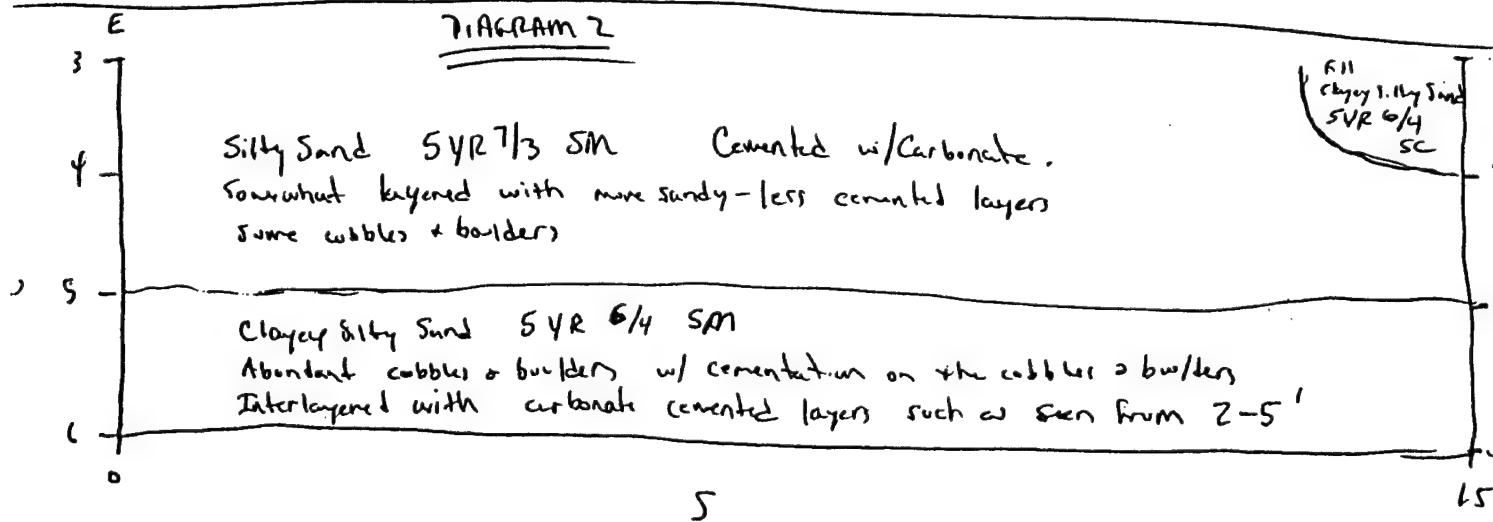 E
DIAGRAM 2
3
Fill
Clayey Silty Sand
5YR 6/4
SC
Silty Sand 5YR 7/3 SM Cemented w/Carbonate.
4
Somewhat layered with more sandy-less cemented layers
Some cobbles & boulders
5
Clayey Silty Sand 5YR 6/4 SM
Abundant cobbles & boulders w/ cementation on the cobbles & boulders
Interlayered with carbonate cemented layers such as seen from 2-5'
6
0
S
15